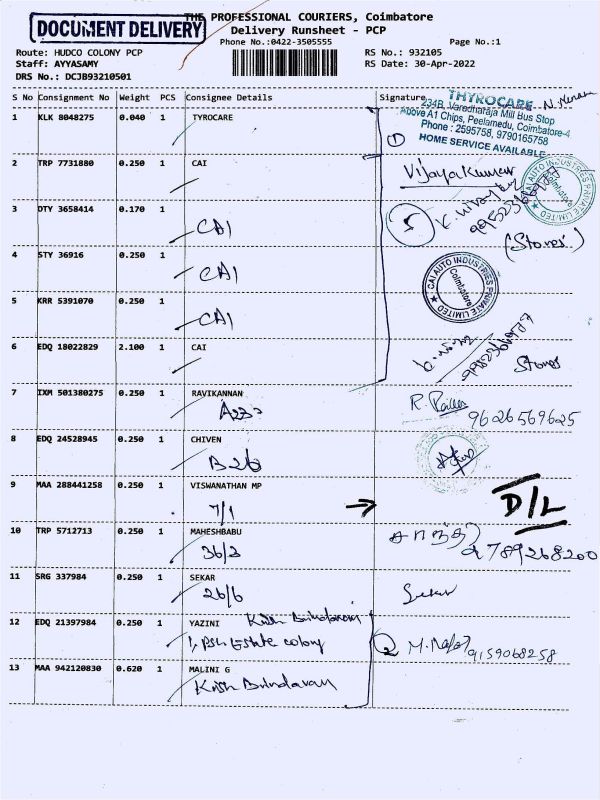 DOCUMENT DELIVERY
THE PROFESSIONAL COURIERS, Coimbatore
Delivery Runsheet - PCP
Phone No.:0422-3505555
Page No.:1
Route: HUDCO COLONY PCP
RS No.: 932105
Staff: AYYASAMY
RS Date: 30-Apr-2022
DRS No.: DCJB93210501
S No Consignment No Weight PCS Consignee Details Signature
THYROCARE
234B, Varedharaja Mill Bus Stop
Above A1 Chips, Peelamedu, Coimbatore-4
Phone : 2595758, 9790165758
HOME SERVICE AVAILABLE
1 KLK 8048275 0.040 1 TYROCARE
1
2 TRP 7731880 0.250 1 CAI
Vijayakumar
CAI AUTO INDUSTRIES PRIVATE LIMITED
Coimbatore
3 DTY 3658414 0.170 1
CAI
5
(Stores)
4 STY 36916 0.250 1
CAI
CAI AUTO INDUSTRIES PRIVATE LIMITED
Coimbatore
5 KRR 5391070 0.250 1
CAI
6 EDQ 18022829 2.100 1 CAI
Stores
7 IXM 501380275 0.250 1 RAVIKANNAN
9626569625
8 EDQ 24528945 0.250 1 CHIVEN
B26
9 MAA 288441258 0.250 1 VISWANATHAN MP
7/1
D/L
10 TRP 5712713 0.250 1 MAHESHBABU
36/3
சாந்தி
9789268200
11 SRG 337984 0.250 1 SEKAR
26/6
Sekar
12 EDQ 21397984 0.250 1 YAZINI Krish Brindavan
Estate colony
2 9159068258
13 MAA 942120830 0.620 1 MALINI G
Krish Brindavan